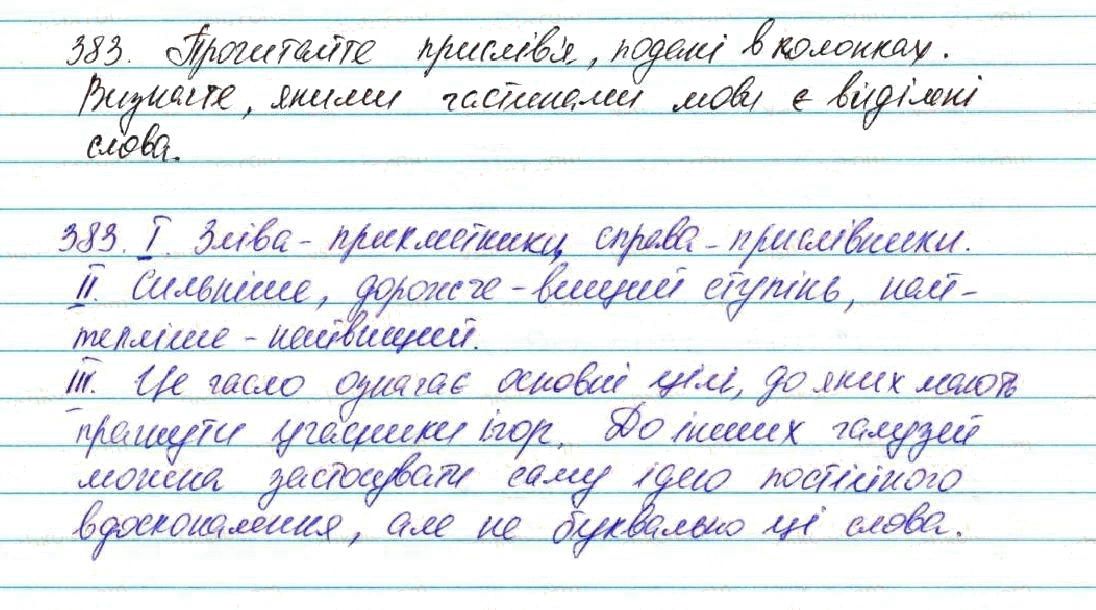 383. Прочитайте прислів'я, подані в колонках.
Визначте, якими частинами мови є виділені
слова.
383. I. Зліва - прикметники, справа - прислівники.
II. Сильніше, дорожче - вищий ступінь, най-
тепліше - найвищий.
III. Це гасло означає основні цілі, до яких мають
прагнути учасники ігор. До інших галузей
можна застосувати саму ідею постійного
вдосконалення, але не буквально ці слова.